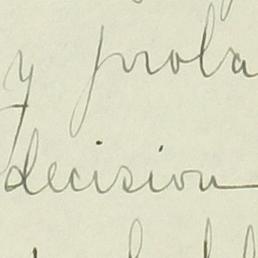 y proba
decision